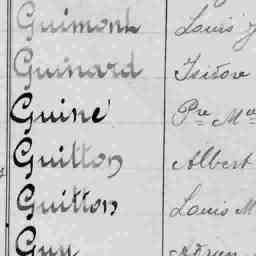 Guimont Louis J
Guinard Isidore
Guiné Pre Me
Guitton Albert
Guitton Louis M
Guy Adrien